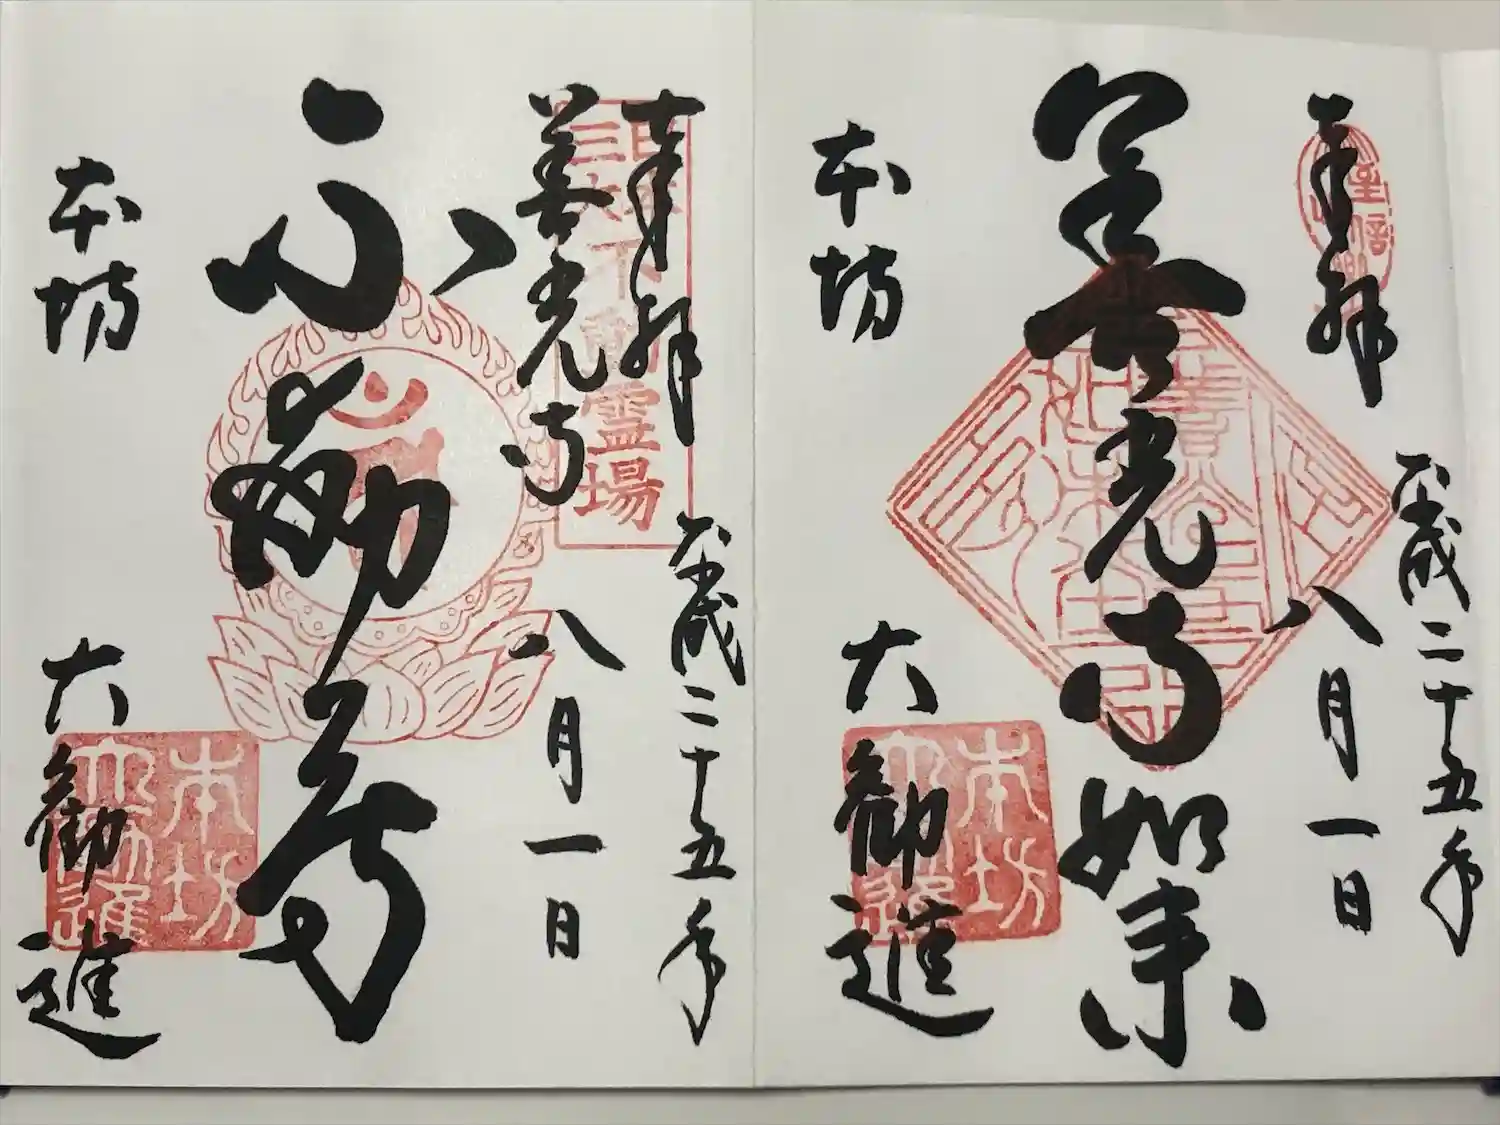 奉拝
平成二十五年
八月一日
善光寺如来
本坊
大勧進
本坊
奉拝
善光寺
平成二十五年
八月一日
不動尊
本坊
大勧進
日本
三大
不動
霊場
本坊
大勧進